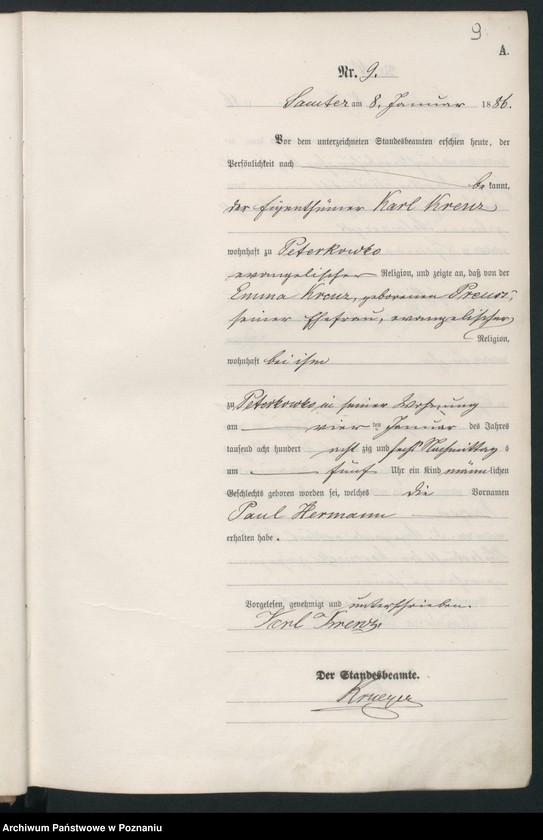 9
A.
Nr. 9.
Samter am 8. Januar 1886.
Vor dem unterzeichneten Standesbeamten erschien heute, der
Persönlichkeit nach
bekannt,
der Eigenthümer Karl Krenz
wohnhaft zu Peterkowko
evangelischer Religion, und zeigte an, daß von der
Emma Krenz, geborenen Preuss,
seiner Ehefrau, evangelischer
Religion,
wohnhaft bei ihm
zu Peterkowko in seiner Wohnung
am vier ten Januar des Jahres
tausend acht hundert achtzig und sechs Nachmittags
um fünf Uhr ein Kind männlichen
Geschlechts geboren worden sei, welches die Vornamen
Paul Hermann
erhalten habe.
Vorgelesen, genehmigt und unterschrieben.
Karl Krenz.
Der Standesbeamte.
Krueger
Archiwum Państwowe w Poznaniu